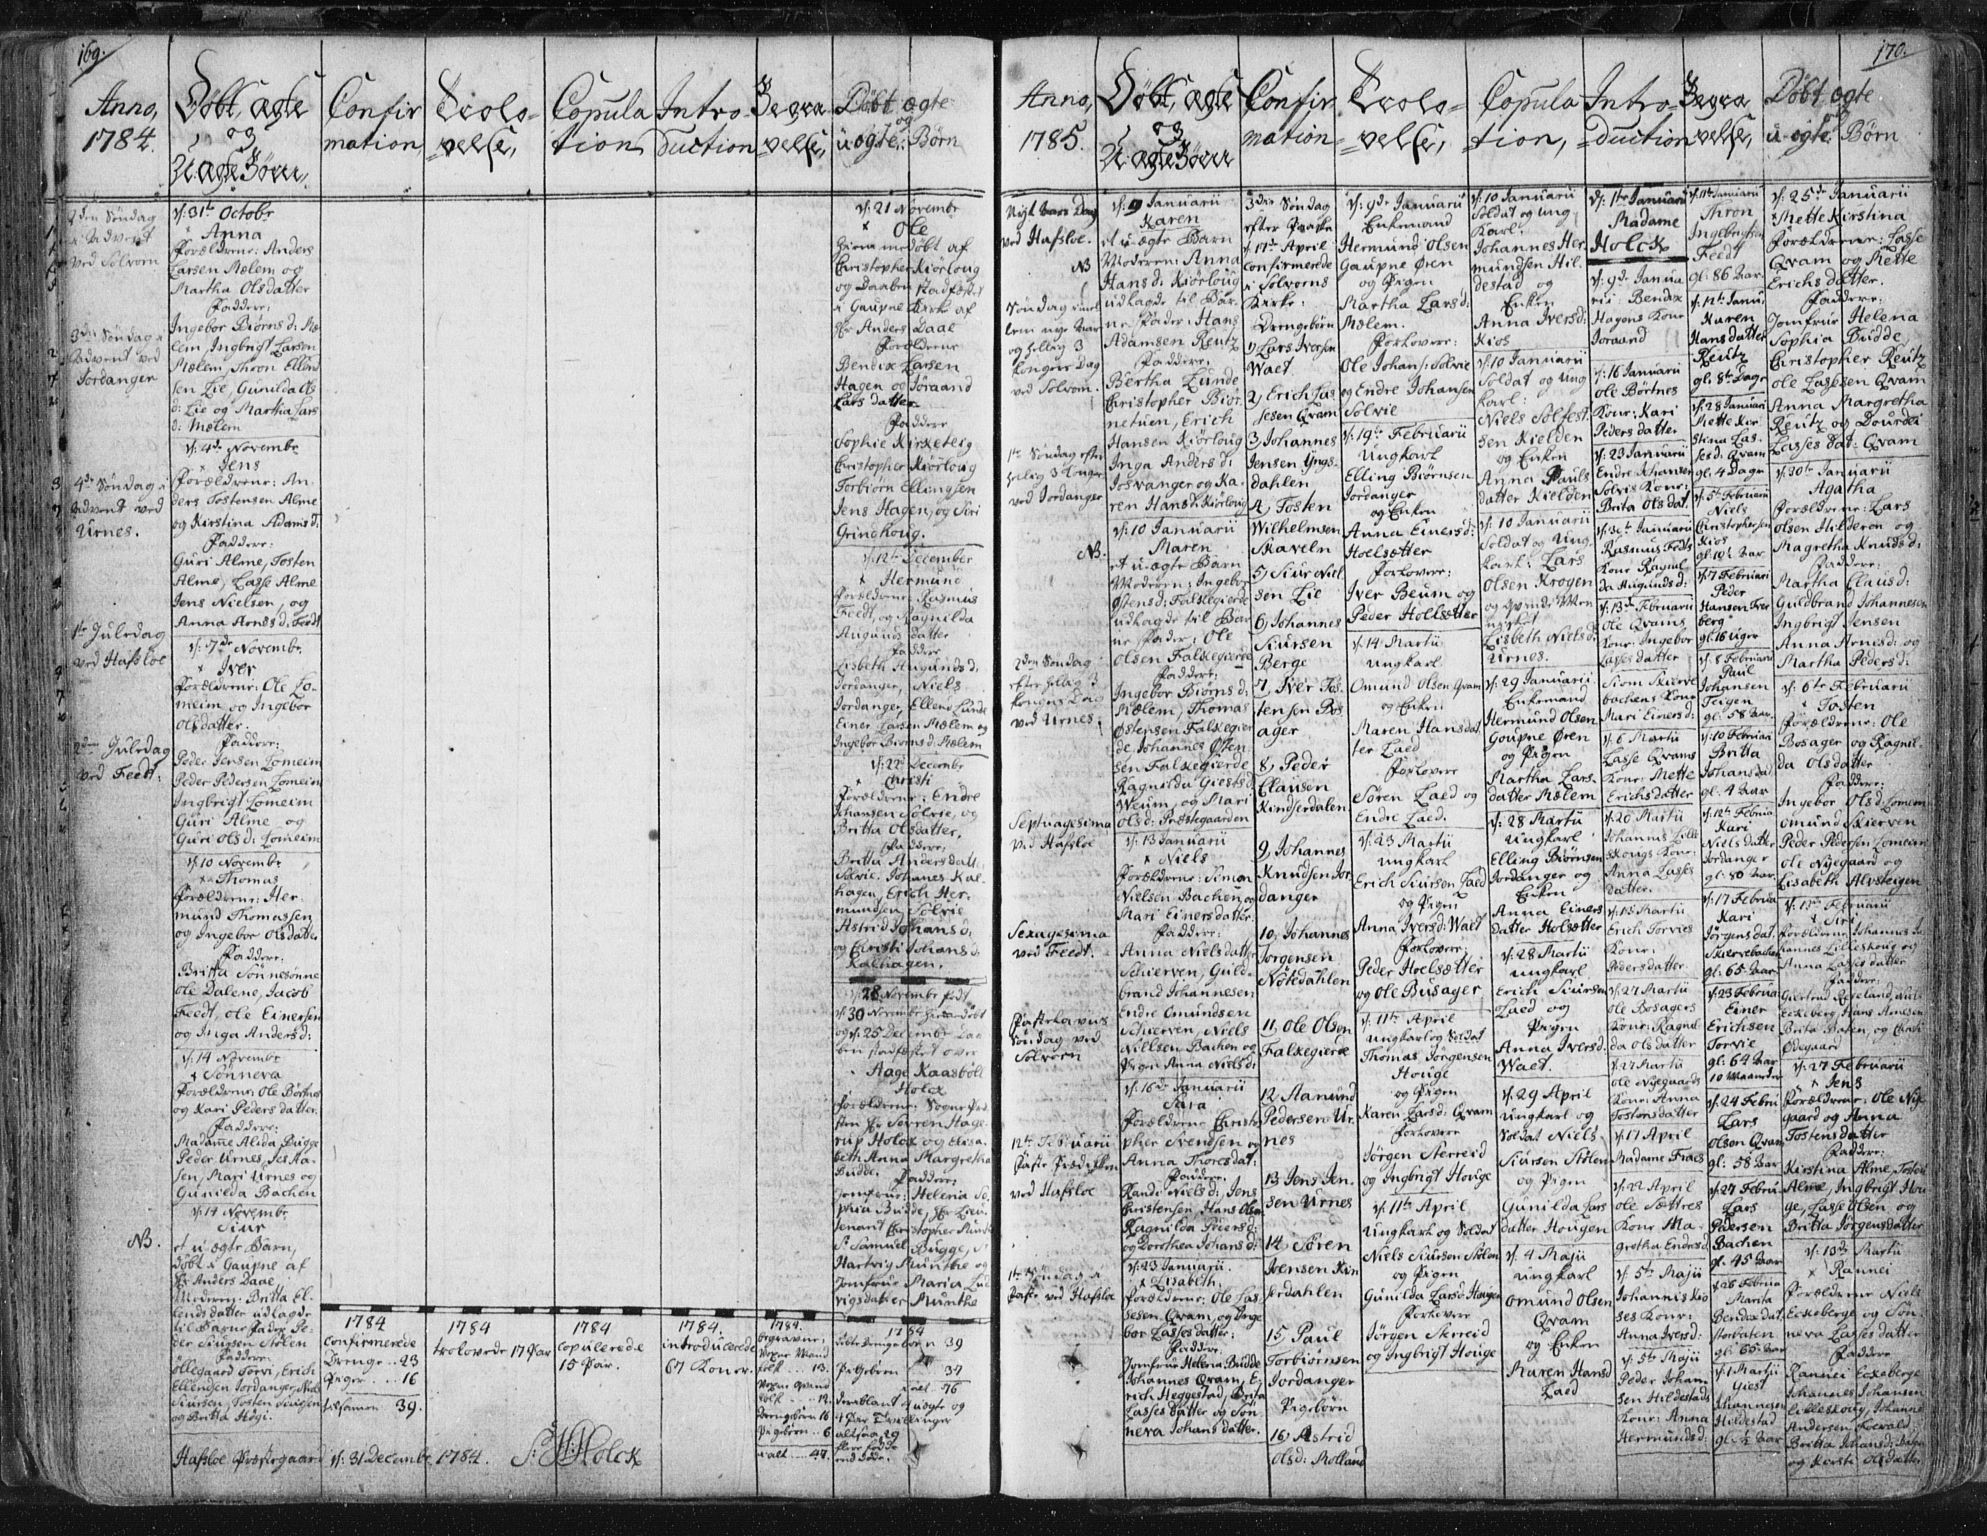 169.
Anno,
1784.
Døbt, ægte
og
U:ægte Børn,
Confir
mation,
Trolo-
velse,
Copula
tion
Intro-
duction
Begra
velse,
Døbt, ægte
og
u:ægte: Børn
2den Søndag
i Advent
ved Solvorn
3die Søndag i
Advent ved
Jordanger
4de Søndag i
Advent ved
Urnes.
1te Juledag
ved Hafsloe
2den Juledag
ved Feedt.
NB.
d: 31te Octobr
Anna
Forældrene: Anders
Larsen Mælem og
Martha Olsdatter
Faddere:
Ingebor Biørns d: Mæ
lem Ingbrigt Larsen
Mælem, Thron Ellend
sen Lie, Gunilda Ols
d: Lie og Martha Lars
d: Mælem
d: 4de Novembr
Jens
Forældrene: An-
ders Tostensen Alme
og Kirstina Adams d:
Faddere:
Guri Alme, Tosten
Alme, Lasse Alme
Jens Nielsen, og
Anna Arnesd: Feedt
d: 7de Novembr
Iver
Forældrene: Ole Lo-
meim og Ingebor
Olsdatter.
Faddere:
Peder Jensen Lomeim
Peder Pedersen Lomeim
Ingbrigt Lomeim
Guri Alme, og
Guri Olsd: Lomeim
d: 10 Novembr
Thomas
Forældrene: Her-
mund Thomassen
og Ingebor Olsdatter
Faddere:
Britta Sønnesønne
Ole Dalene, Jacob
Feedt, Ole Einersen
og Inga Andersd:
d: 14 Novembr
Sønneva
Forældrene: Ole Børtnes
og Kari Pedersdatter.
Faddere:
Madame Alida Bugge
Peder Urnes, Jes Aa-
sen, Mari Urnes og
Gunilda Bachen
d: 14 Novembr
Siur
et u:ægte Barn,
døbt i Gaupne af
Hr Anders Daae
Moderen: Britta El-
lends datter udlagde
til Barne Fader Pe-
der Siursen Stølen
Faddere:
Øllegaard Torvi, Erich
Ellendsen Jordanger, Niels
Siursen, Tosten Siursen
og Britta Høgi.
1784
confirmerede
Drenge .. 23
Piger .... 16
tilsamen 39.
1784
trolovede 17 Par
1784
copulerede
15 Par.
1784.
introducerede
67 Koner.
1784.
begravne:
Voxne Mand
folk ... 13.
Voxne Qvind
folk .. 12
Drengebørn 16
Pigebørn .. 6
i alt .... 47.
Hafsloe Præstegaard d: 31 Decembr 1784. S: H: Holck
d: 21 Novembr
Ole
hiemmedøbt af
Christopher Kiørloug
og Daaben stadfæstet
i Gaupne Kirke af
Hr Anders Daae
Forældrene
Bendix Larsen
Hagen og Joraand
Lars datter.
Faddere
Sophie Kirketeig
Christopher Kiørloug
Torbiørn Ellingsen
Jens Hagen, og Siri
Grindhoug.
d: 12te December
Hermund
Forældrene: Rasmus
Feedt, og Ragnilda
Augunds datter
Faddere
Lisbeth Augundsd:
Jordanger, Niels
Jordanger, Ellend Lunde
Einer Larsen Mælem og
Ingebor Biørnsd: Mælem
d: 22de December
Christi
Forældrene: Endre
Johansen Solvie, og
Britta Olsdatter,
Faddere:
Britta Andersdatt:
Solvie, Johanes Kal-
hagen, Erich Her-
mundsen Solvie
Astrid Johans d:
og Christi Johansd:
Kalhagen.
d: 28 Novembr født
d: 30 Novembr hiemedøbt
og d: 25 December Daa-
ben stadfæstet over
Aage Kaasbøll
Holck
Forældrene: Sogne Præ-
sten Hr Søren Hage-
rup Holck og Elisa-
beth Anna Margretha
Budde.
Faddere:
Jomfrue: Helena So-
phia Budde, Hr Lieu-
tenant Christopher Munthe
Sr Samuel Bugge, Sr
Hartvig Munthe og
Jomfrue Maria Lud
vigsdatter Munthe
1784
Døbte Drengebørn 39
Pigebørn .. 37
i alt - 76
deriblant 4 uægte og
1 Par Tvillinger
altsaa 29
flere fødde
end døde.
170.
Anno,
1785.
Døbt, ægte
og
U:ægte Børn
Confir
mation,
Trolo-
velse,
Copula
tion,
Intro-
duction
Begra
velse,
Døbt, ægte
u:ægte: Børn
Nyt Aars Dag
ved Hafsloe.
NB
Søndag imel
lem nye Aar
og hellig 3
Konger Dag
ved Solvorn.
1te Søndag efter
hellig 3 Konger
ved Jordanger
NB.
2den Søndag
efter hellig 3
Kongers Dag
ved Urnes.
Septuagesima
ved Hafsloe
Sexagesima
ved Feedt.
Fastelavns
Søndag ved
Solvorn
12te Februarii
Faste Prædiken
ved Hafsloe
1te Søndag i
Faste ved Hafsloe
d: 9 Januarii
Karen
et u:ægte Barn
Moderen: Anna
Hans d: Kiørloug
udlagde til Bar-
ne Fader: Hans
Adamsen Reutz
Faddere:
Bertha Lunde
Christopher Biør-
netuen, Erich
Hansen Kiørloug
Inga Anders d:
Josvanger og Ka-
ren Hansd: Kiørloug
d: 10 Januarii
Maren
et u:ægte Barn
Moderen: Ingebor
Østensd: Falkegierde
udlagde til Bar
ne Fader: Ole
Olsen Falkegierde
Faddere:
Ingebor Biørns d:
Mælem, Thomas
Østensen Falkegier
de Johannes Østen
sen Falkegierde
Ragnilda Giestsd:
Weum, og Mari
Ols d: Præstegaarden
d: 13 Januarii
Niels
Forældrene: Simon
Nielsen Bachen og
Mari Einersdatter.
Faddere:
Anna Nielsdatter
Schierven, Guld-
brand Johannesen
Endre Omundsen
Schierven, Niels
Nielsen Bachen og
Pigen Anna Nielsd:
d: 16de Januarii
Sara
Forældrene Christo-
pher Svendsen og
Anna Thoresdat:
Faddere:
Randi Nielsd: Jens
Christensen, Hans Olsen
Ragnilda Peders d:
og Dorothea Johansd:
d: 23 Januarii.
Lisabeth.
Forældrene: Ole Las-
sesen Qvam, og Inge
bor Lassesdatter:
Faddere:
Jomfrue Helena Budde
Johannes Qvam, E-
rich Heggestad, Brita
Lassesdatter og Søn
neva Johansdatter.
3die Søndag
efter Paaske
d: 17te April
confirmerede
i Solvorns
Kirke:
Drengebørn
1, Lars Iversen
Waet
2, Erich Las
sesen Qvam
3, Johannes
Jensen Yngs-
dahlen
4, Tosten
Wilhelmsen
Skaveln
5, Siur Niel
sen Lie
6, Johannes
Siursen
Berge
7, Iver Tos-
tensen Bos
ager
8, Peder
Clausen
Kinserdalen
9, Johannes
Knudsen Jor
danger
10, Johannes
Jorgensen
Nøtedahlen
11, Ole Olsen
Falkegierde
12 Aamund
Pedersen Ur-
nes
13 Jens Jen-
sen Urnes
14, Søren
Joensen Kin
serdahlen
15, Paul
Torbiørnsen
Jordanger
Pigebørn
16, Astrid
Olsd: Molland
d: 9de Januarii
Enkemand
Hermund Olsen
Gaupne Øren
og Pigen
Martha Lars d:
Mælem.
Forlovere:
Ole Johans: Solvie
og Endre Johansen
Solvie
d: 19te Februarii
Ungkarl
Elling Biørnsen
Jordanger
og Enken
Anna Einersd:
Hoelsætter
Forlovere:
Iver Beum og
Peder Hollsætter
d: 14 Martii
Ungkarl
Omund Olsen Qvam
og Enken
Maren Hansdat
ter Laed
Forlovere
Søren Laed og
Endre Laed.
d: 23 Martii
Ungkarl
Erich Siursen Laed
og Pigen
Anna Iversd: Waet
Forlovere:
Peder Hoelsætter
og Ole Busager
d: 11te April
Ungkarl og Soldat
Thomas Jørgensen
Houge
og Pigen
Karen Larsd: Qvam
Forlovere
Jørgen Sterreid
og Ingbrigt Houge
d: 11te April
Ungkarl og Soldat
Niels Siursen Stølen
og Pigen
Gunilda Larsd: Hougen
Forlovere
Jørgen Sterreid
og Ingbrigt Houge
d: 10 Januarii
Soldat og Ung
Karl:
Johannes Her-
mundsen Hil-
destad og
Enken
Anna Iversd:
Kios
d: 10 Januarii
Soldat og Ung
karl:
Niels Solfest
sen Kielden
og Enken
Anna Pauls
datter Kielden
d: 10 Januarii
Soldat og Ung
karl: Lars
Olsen Krogen
og Qvinde Men
nisket
Lisbeth Nielsd:
Urnes.
d: 29 Januarii
Enkemand
Hermund Olsen
Goupne Øren
og Pigen
Martha Lars-
datter Mælem
d: 28 Martii
Ungkarl
Elling Biørnsen
Jordanger og
Enken
Anna Einers
datter Holsætter
d: 28 Martii
Ungkarl
Erich Siursen
Laed og
Pigen
Anna Iversd.
Waet.
d: 29 April
Ungkarl og
Soldat Niels
Siursen Stølen
og Pigen
Gunilda Lars
datter Hougen
d: 4 Maji
Ungkarl
Omund Olsen
Qvam
og Enken
Maren Hansd
Laed
d: 1te Januarii
Madame
Holck
d: 9de Janua
rii: Bendix
Hagens Kone
Joraand
d: 16 Januarii
Ole Børtnes
Kone: Kari
Pedersdatter
d: 23 Januarii
Endre Johansen
Solvis Kone:
Brita Olsdat.
d: 30te Januarii
Rasmus Feets
Kone Ragnil
da Augundsd:
d: 13de Februarii
Ole Qvams
Kone: Ingebor
Lassesdatter
Siom Skierve
bachens Kone
Mari Einersd:
d: 6 Martii
Lasse Qvams
Kone: Mette
Erichsdatter
d: 20 Martii
Johannis Lille
skougs Kone:
Anna Lasses
datter.
Erich Torvies
Kone:
Pedersdatter
d: 27 Martii
Ole Bosagers
Kone: Ragnil
da Olsdatter
d: 27 Martii
Ole Nyegaards
Kone: Anna
Tostensdatter
d: 17 April
Madame Friis
d: 22 April
Ole Sættres
Kone Ma-
gretha Endresd
d: 5te Maji
Johannis Kio
ses Kone:
Anna Iversd:
d: 5te Maji
Peder Johan
sen Hildestads
Kone: Anna
Hermundsd:
d: 11te Januarii
Thron
Ingebrigtsen
Feedt
gl: 86 Aar.
d: 12te Janu:
Karen
Hansdatter
Reutz
gl: 8te Dage
d: 28 Januari
Mette Kir
stina Las-
sesd: Qvam
gl: 4 Dage
d: 5te Februarii
Niels
Christophersen
Kios
d: 7 Februari
Peder
Hansen Fver
berg
gl: 16 Uger
d: 8 Februari
Paul
Johansen
Teigen
gl: 58 Aar.
d: 10 Februari
Britta
Johansdat
gl: 4 Aar
d: 12te Februa
Kari
Nielsdatter
Jordanger
gl: 80 Aar.
d: 17 Februa
Kari
Jørgensdat.
Skiervebachen
gl: 65 Aar
d: 23 Februa
Einer
Erichsen
Torvie
gl: 64 Aar
10 Maaneder
d: 24 Febru
Lars
Olson Qvam
gl: 58 Aar
d: 27 Febru
Lars
Pedersen
Bachen
gl: 45 Aar
d: 28 Februa
Marita
Bendixdat:
gl: 65 Aar
d: 1 Martii
Giest
Johannesen
Hildestad
gl: ½ Aar
d: 25de Januarii
Mette Kirstina
Forældrene: Lasse
Qvam og Mette
Erichsdatter.
Faddere:
Jomfrue Helena
Sophia Budde,
Christopher Reutz
Ole Lassesen Qvam
Anna Margretha
Reutz og Dourdei
Lasses Dat: Qvam
d: 30te Januarii
Agatha
Forældrene: Lars
Olsen Hilderen og
Magretha Knuds d:
Faddere:
Martha Claus d:
Guldbrand Johannesen
Ingbrigt Jensen
Anna Arnesd: og
Martha Pedersd:
d: 6te Februarii
Tosten
Forældrene: Ole
Bosager og Ragnil-
da Olsdatter
Faddere:
Ingebor Olsd: Lomeim
Omund Skierven
Peder Pedersen Lomeim
Ole Nyegaard og
Lisabeth Alvsteigen
d: 13de Februarii
Siri
Forældrene Johannes Jo
hannes Lilleskoug og
Anna Lasses datter
Faddere:
Giertrud Røveland, Niels
Eckeberg Hans Arnesen
Brita Baken, og
Ødegaard
d: 27 Februarii
Jens
Forældrene: Ole Nye
gaard og Anna
Tostensdatter
Faddere:
Kirstina Alme, Tosten
Alme, Ingbrigt Hou
ge, Lasse Olsen, og
Britta Jørgensdatter
d: 13de Martii
Rannei
Forældrene Niels
Eckeberge og Søn-
neva Lassesdatter
Faddere
Rannei Eckeberge
Johannes Johansen
Lilleskoug, Johanne
Andersen Loevald
Britta Johansd:
og Kersti Olsdatter